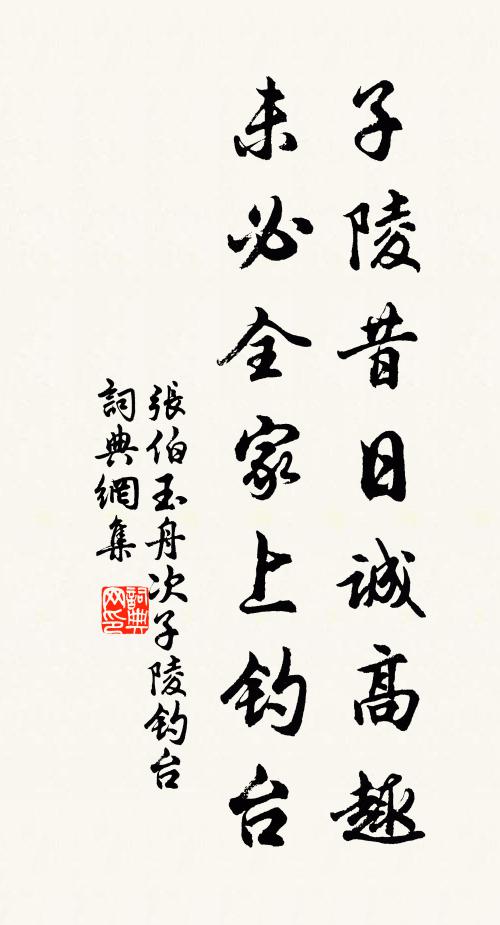 子陵昔日誠高趣
未必全家上釣台
張伯玉舟次子陵釣台
詞典網集
詞典网印